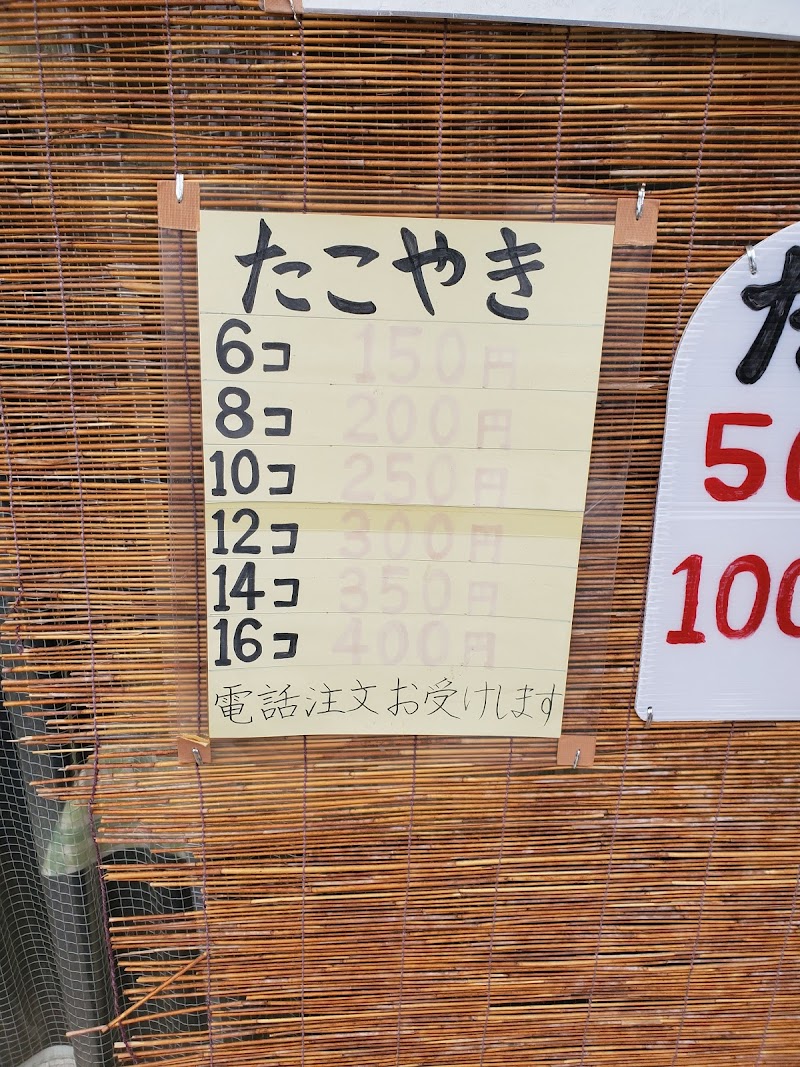 たこやき
6コ 150円
8コ 200円
10コ 250円
12コ 300円
14コ 350円
16コ 400円
電話注文お受けします
た
50
100